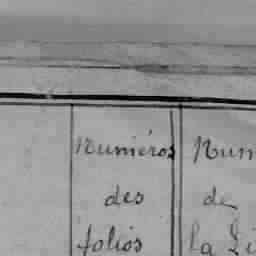 Numéros
des
folios
Num
de
la Li